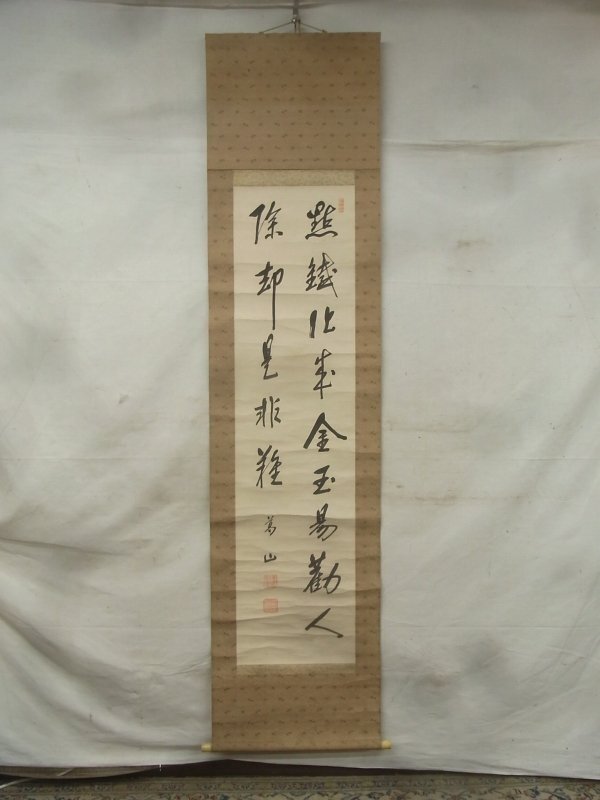 點鐵化成金玉易勸人
除却是非難
山